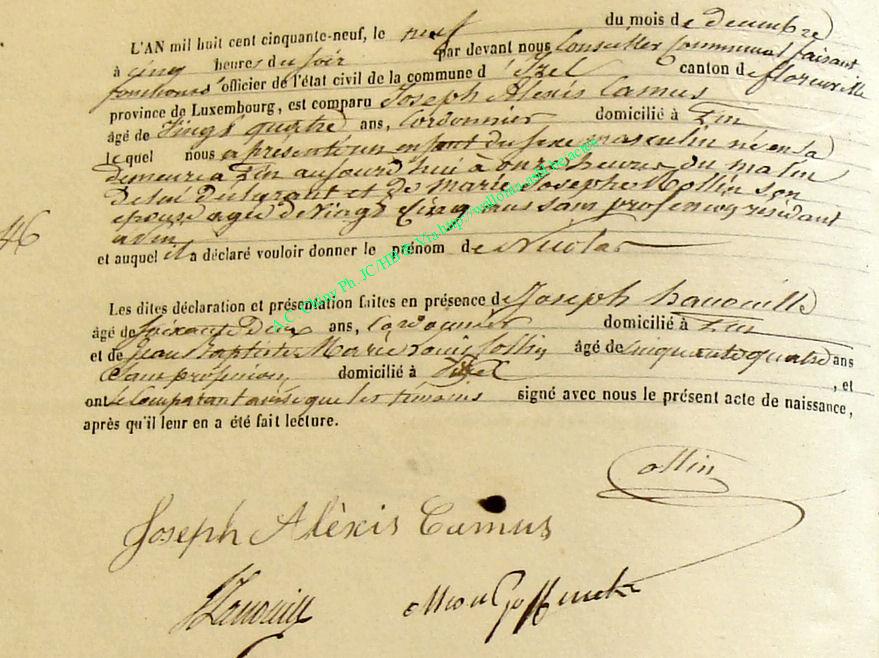 L'AN mil huit cent cinquante-neuf, le neuf du mois de decembre
à cinq heures du soir par devant nous Conseiller Communal faisant
fonctions d'officier de l'état civil de la commune d'Izel canton de florenville
province de Luxembourg, est comparu Joseph Alexis Camus
âgé de Vingt quatre ans, Cordonnier domicilié à
lequel nous a présenté un enfant du sexe masculin né en sa
demeure à aujourd'hui à onze heures du matin
De lui déclarant et de marie Josephe Collin son
epouse agée de Vingt Cinq ans sans profession résidant
46
et auquel il a déclaré vouloir donner le prénom de Nicolas
Les dites déclaration et présentation faites en présence de Joseph
âgé de Soixante Deux ans, Cordonnier domicilié à
et de jean Baptiste Marie Louis Collin âgé de cinquante quatre ans
Sans profession, domicilié à Izel , et
ont le Comparant ainsi que les témoins signé avec nous le présent acte de naissance,
après qu'il leur en a été fait lecture.
Collin
Joseph Alèxis Camus